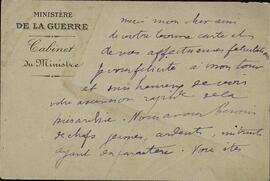 MINISTÈRE
DE LA GUERRE
Cabinet
du Ministre
merci mon cher ami
de votre bonne carte et
de vos affectueuses félicitations
je vous félicite à mon tour
et suis heureux de voir
votre ascension rapide de la
hiérarchie. Nous avons besoin
de chefs jeunes, ardents, instruits
ayant du caractère. Vous êtes